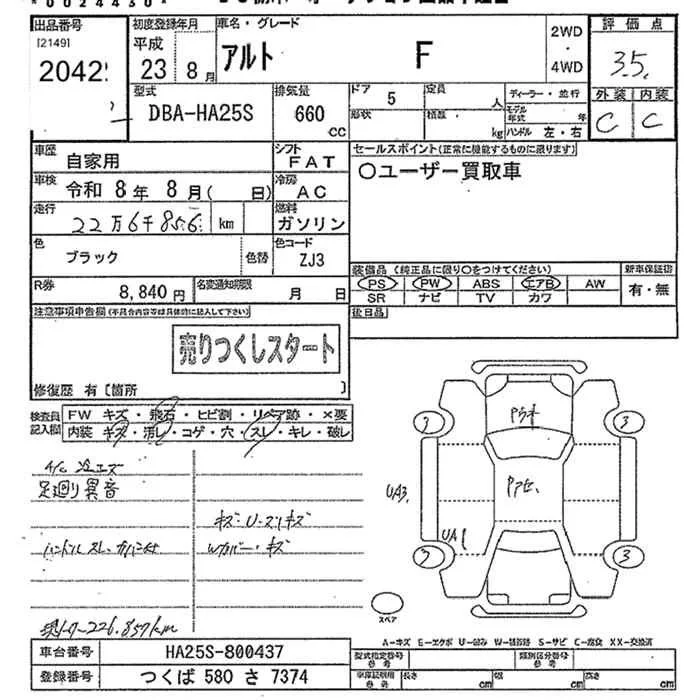 *0024430*
出品番号 初度登録年月 車名・グレード 2WD・4WD 評価点
[2149]
2042
平成 23 8月 アルト F 3.5
外装 内装
C C
型式 DBA-HA25S 排気量 660 CC
ドア 5 定員 人 ディーラー・並行
形状 積載 kg モデル年式 年
ハンドル 左・右
車歴 自家用 シフト FAT
セールスポイント(正常に機能するものに限ります)
○ユーザー買取車
車検 令和 8年 8月( 日) 冷房 AC
走行 22万6千856 km 燃料 ガソリン
色 ブラック 色替 色コード ZJ3
装備品(純正品に限り○をつけてください) 新車保証書
PS PW ABS エアB AW 有・無
SR ナビ TV カワ
R券 8,840円 名変通知期限 月 日
後日品
注意事項申告欄(不具合内容等は具体的に記入して下さい)
売りつくしスタート
修復歴 有[箇所 ]
検査員記入欄
FW キズ・飛石・ヒビ割・リペア跡・×要
内装 キズ・汚レ・コゲ・穴・スレ・キレ・破レ
足廻り異音
キズ・U・スリキズ
Wカバー・キズ
226,857km
3 3
UA3
UA1
3 3
スペア
A-キズ E-エクボ U-凹み W-補修跡 S-サビ C-腐食 XX-交換済
車台番号 HA25S-800437
型式指定番号参考 類別区分番号参考
登録番号 つくば 580 さ 7374
車庫証明用参考 長さ cm 幅 cm 高さ cm